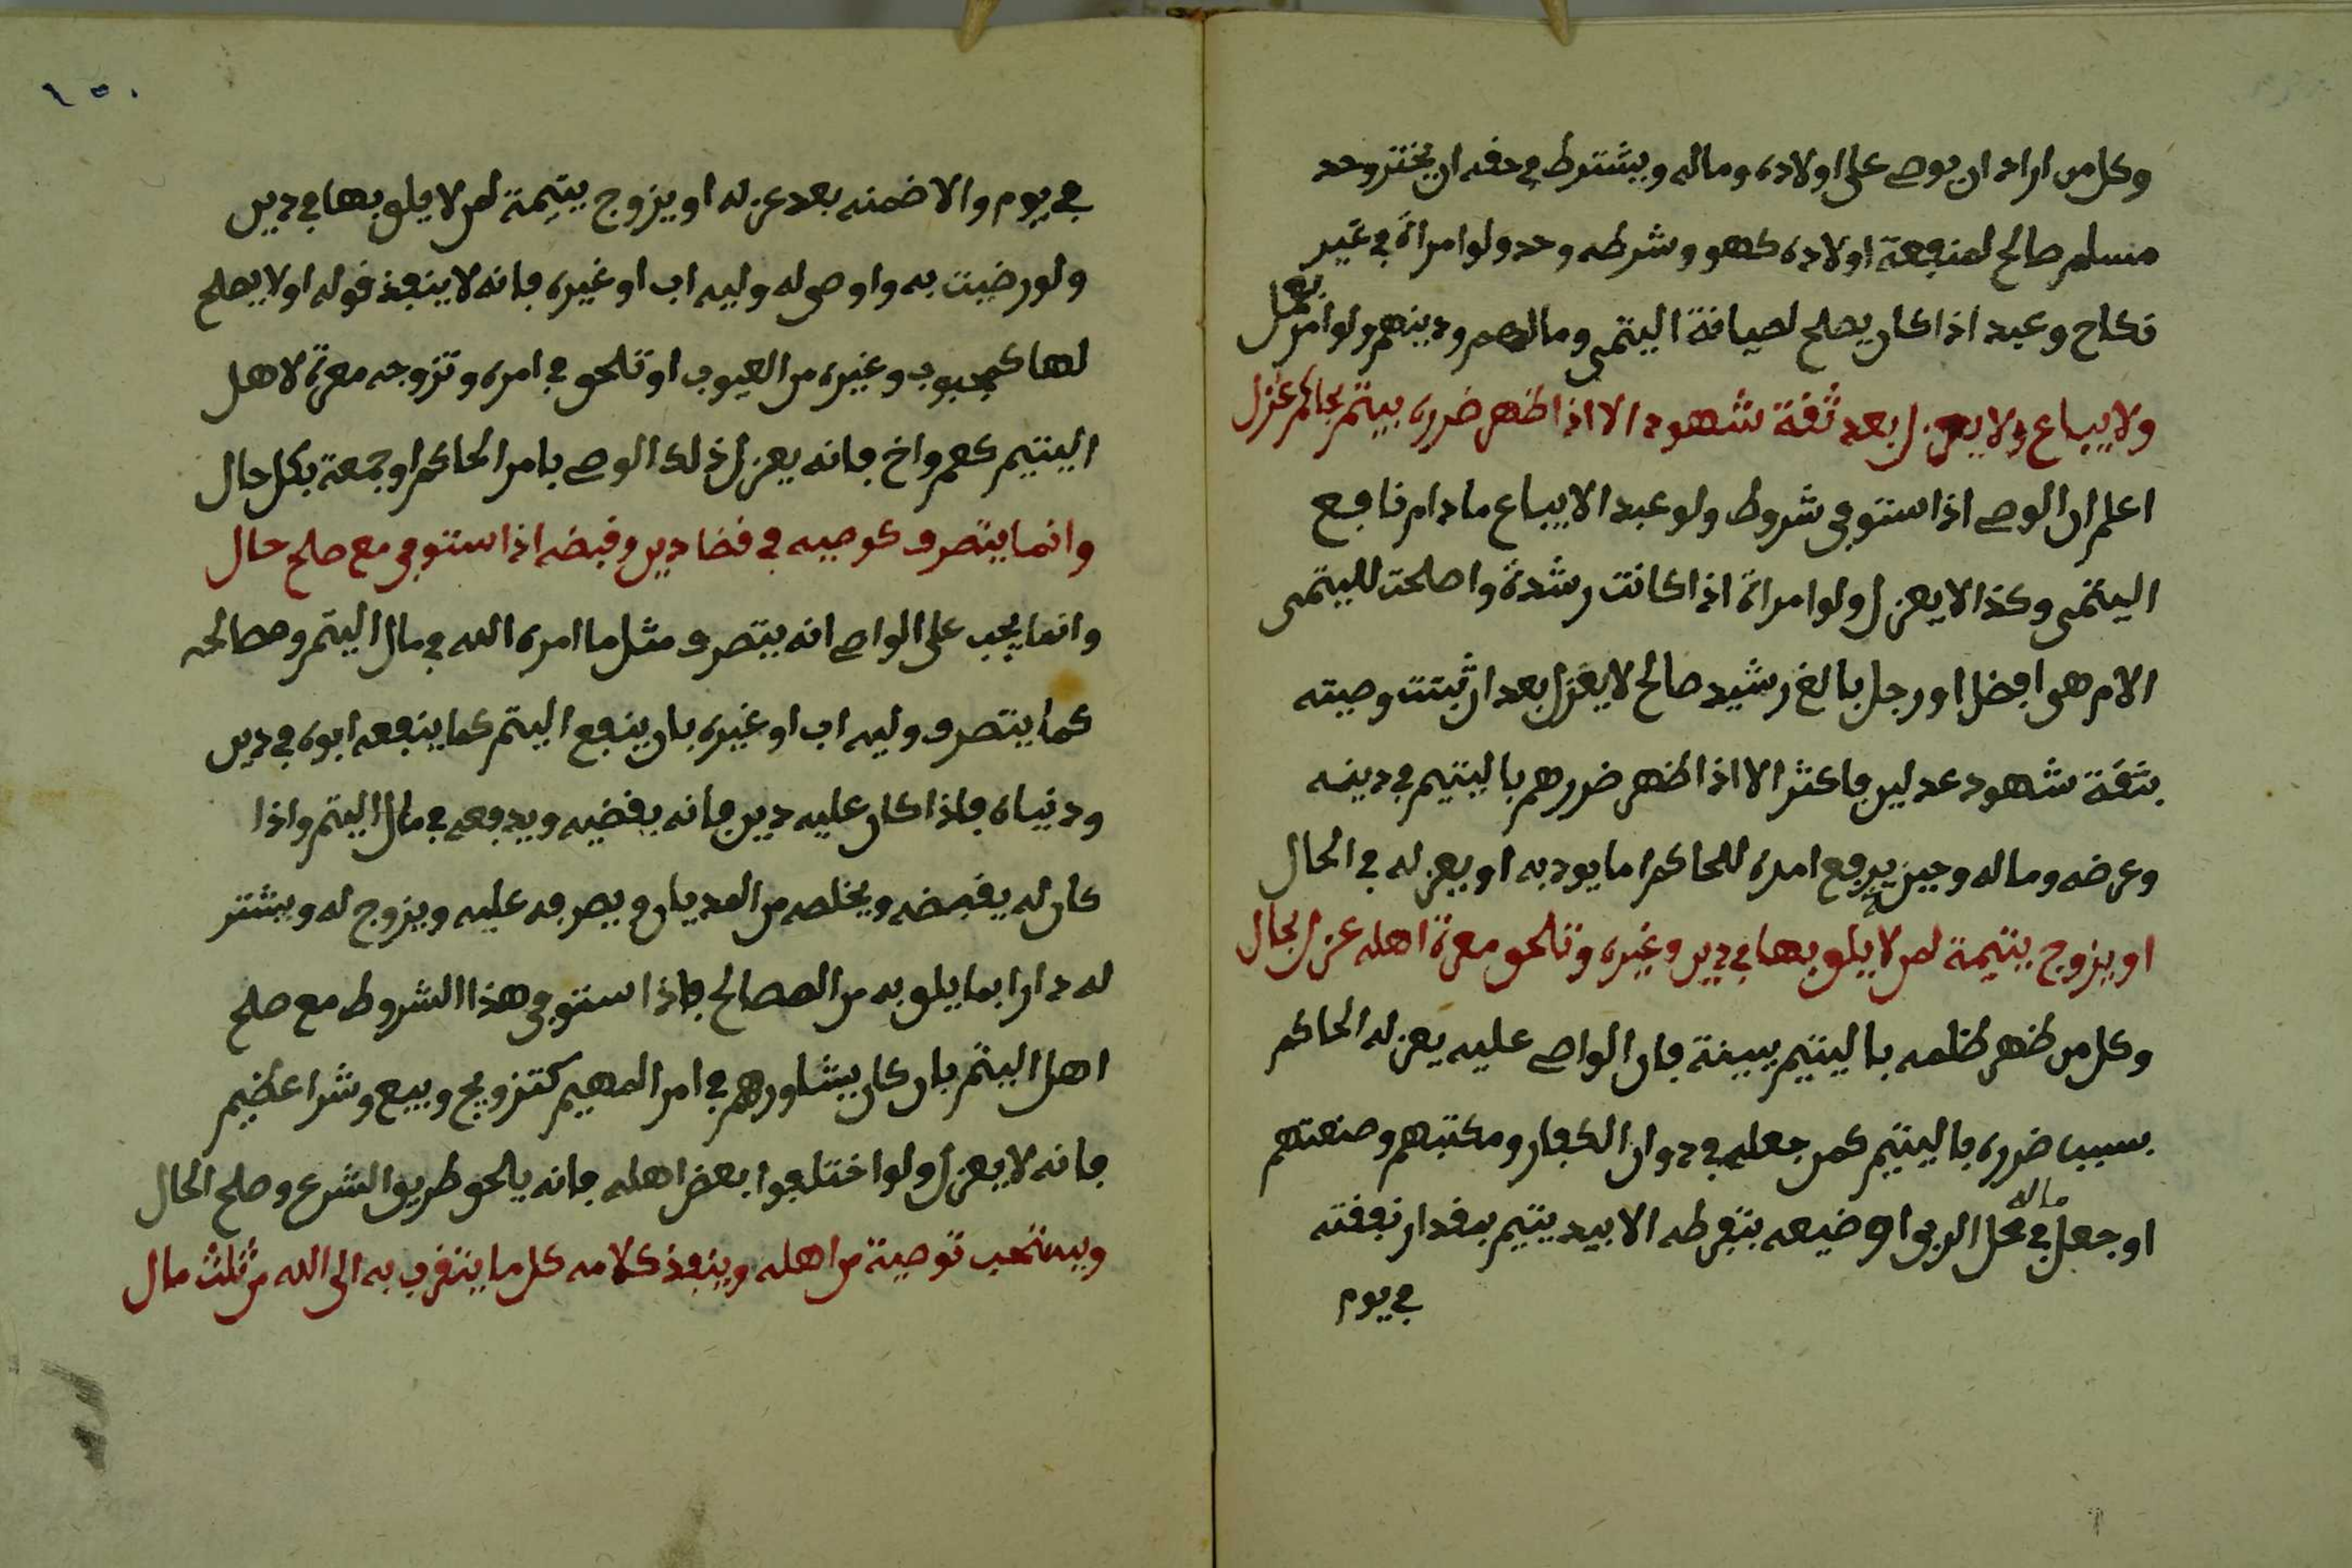 وكل من اراد ان يوصي على اولاده وماله ويشترط في حقه ان يختر وحد
مسلم صالح لمنفعة اولاده كهو وشرطه وحد ولو امراة في غير
نكاح وعبد اذا كان يصلح لصيانة اليتمى ومالهم ودينهم ولو امر
ولا يباع ولا يعزل بعد ثقة شهود الا اذا ظهر ضرره بيتم بحاكم عزل
اعلم ان الوصي اذا ستوفى شروط ولو عبد الا يباع مادام نافع
اليتمى وكذا لا يعزل ولو امراة اذا كانت رشدة واصلحت لليتمى
الام هو افضل او رجل بالغ رشيد صالح لا يعزل بعد ان ثبتت وصيته
بثقة شهود عدلين فاكثر الا اذا ظهر ضررهم باليتيم في دينه
وعرضه وماله وحين يرفع امره للحاكم اما يودبه او يعزله في الحال
او يزوج يتيمة لمن لا يلق بها في دين وغيره وتلحق معرة اهله عزل بحال
وكل من ظهر ظلمه باليتيم ببينة فان الواصي عليه يعزله الحاكم
بسبب ضرره باليتيم كمن جعله في دوان الكفار ومكتبهم وصنعتهم
او جعل ماله في محل الربى او ضيعه بتفرطه الا بيد يتيم بقدار نفقته
في يوم
١٥٠
في يوم والا ضمنه بعد عزله او يزوج يتيمة لمن لا يلق بها في دين
ولو رضيت به واوصى له وليه اب او غيره فانه لا ينفذ قوله او لا يصلح
لها كمجبوب وغيره من العيوب او تلحق في امره وتزوجه معرة لاهل
اليتيم كعم واخ فانه يعزل ذلك الوصي بامر الحاكم او جمعة بكل حال
وانما يتصرف كوصيه في قضا دين وقبضه اذا ستوفى مع صلح حال
وانما يجب على الواصي انه يتصرف مثل ما امره الله في مال اليتم ومصالحه
كما يتصرف وليه اب او غيره بان ينفع اليتم كما ينفعه ابوه في دين
ودنياه فاذا كان عليه دين فانه يقضيه ويدفعه في مال اليتم واذا
كان له يقبضه ويخلصه من المديان ويصرفه عليه ويزوج له ويشتر
له دارا بما يلق به من المصالح فاذا ستوفى هذا الشروط مع صلح
اهل اليتم بان كان يشاورهم في امر المهيم كتزويج وبيع وشرا عظيم
فانه لا يعزل ولو اختلفوا بعض اهله فانه يلحق طريق الشرع وصلح الحال
ويستحب توصية من اهله وينفذ كلامه كل ما يتقرب به الى الله من ثلث مال